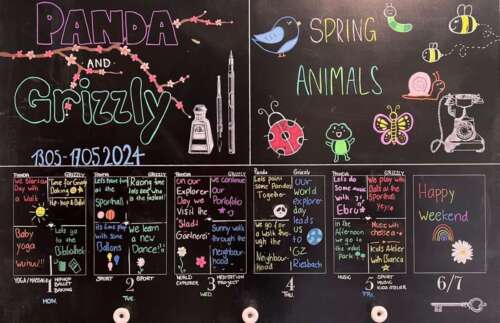 PANDA
AND
Grizzly
13.05-17.05.2024
SPRING
ANIMALS
PANDA
We start our
Day with
a Walk
GRIZZLY
Time for Grizzly
Baking
Hip-hop & Ballet
Baby
yoga
wuhuu!!!
Lets go
to the
Bibliothek
PANDA
the
Sporthalle
GRIZZLY
Racing time
lets see who
is the fastest!
play
with some
Ballons
We learn
a new
Dance!
PANDA
on our
Explorer
Day we
Visit the
"Stadt
Gärtnerei"
GRIZZLY
We continue
our
Portofolio
Sunny walk
through the
neighbour-
hood
Panda
Lets paint
some Pandas
Together
Grizzly
Our
world
explorer
day
leads
us
to
GZ
Riesbach
We go for
a Walk thro-
ugh the
Neighbour-
hood
PANDA
Lets do
some
Music
with
Ebro
GRIZZLY
We play with
Balls at the
Sporthalle
In the
afternoon
we go to
the
Park
Music with
Kids Atelier
with Bianca
Happy
weekend
YOGA/MASSAGE
1
MON.
HIPHOP
BALLET
BAKING
SPORT
2
TUE.
SPORT
WORLD
EXPLORER
3
WED.
PROJECT
4
THU.
MUSIC
5
FRI.
SPORT
MUSIC
KIDS ATELIER
6/7